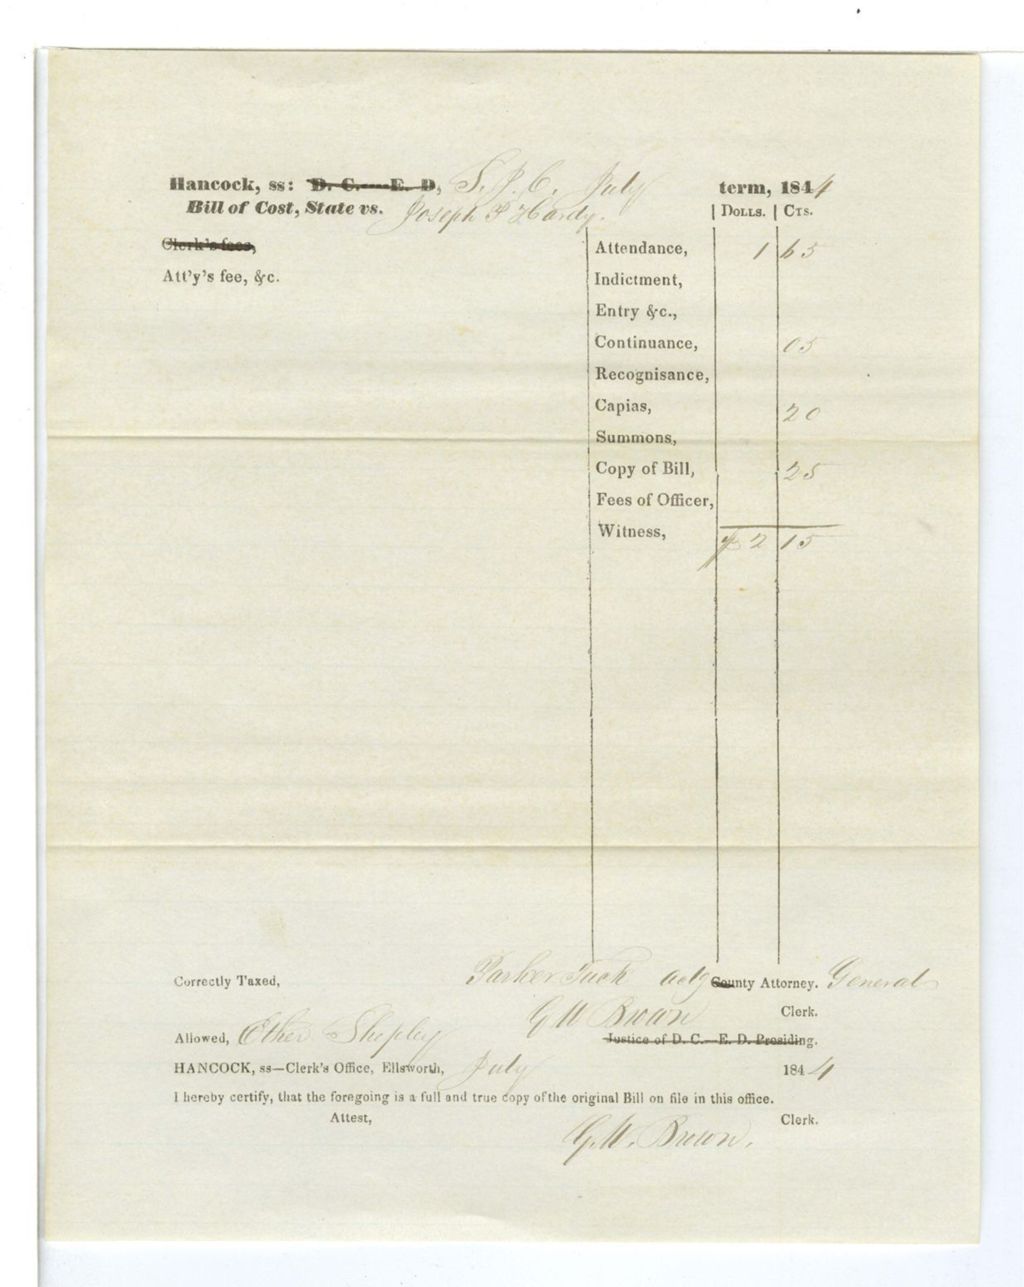 Hancock, ss: D. C.—E. D, S. J. C. July term, 1844
Bill of Cost, State vs. Joseph P Hardy. | DOLLS. | CTS.
Clerk's fees,
Attendance, 1 65
Att'y's fee, &c.
Indictment,
Entry &c.,
Continuance, 05
Recognisance,
Capias, 20
Summons,
Copy of Bill, 25
Fees of Officer,
Witness, $ 2 15
Correctly Taxed, Parker Tuck actg County Attorney. General
G W Brown Clerk.
Allowed, Ether Shepley Justice of D. C.—E. D. Presiding.
HANCOCK, ss—Clerk's Office, Ellsworth, July 1844
I hereby certify, that the foregoing is a full and true copy of the original Bill on file in this office.
Attest, G. W. Brown. Clerk.